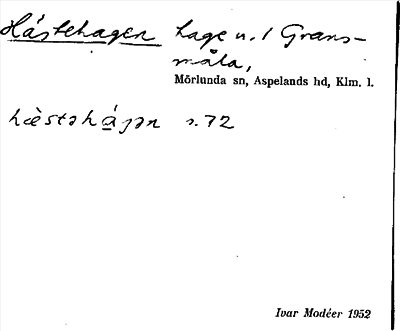 Hästehagen hage u. 1 Grans-
måla,
Mörlunda sn, Aspelands hd, Klm. l.
hæ̀stəhá̱ɡən s. 72
Ivar Modéer 1952